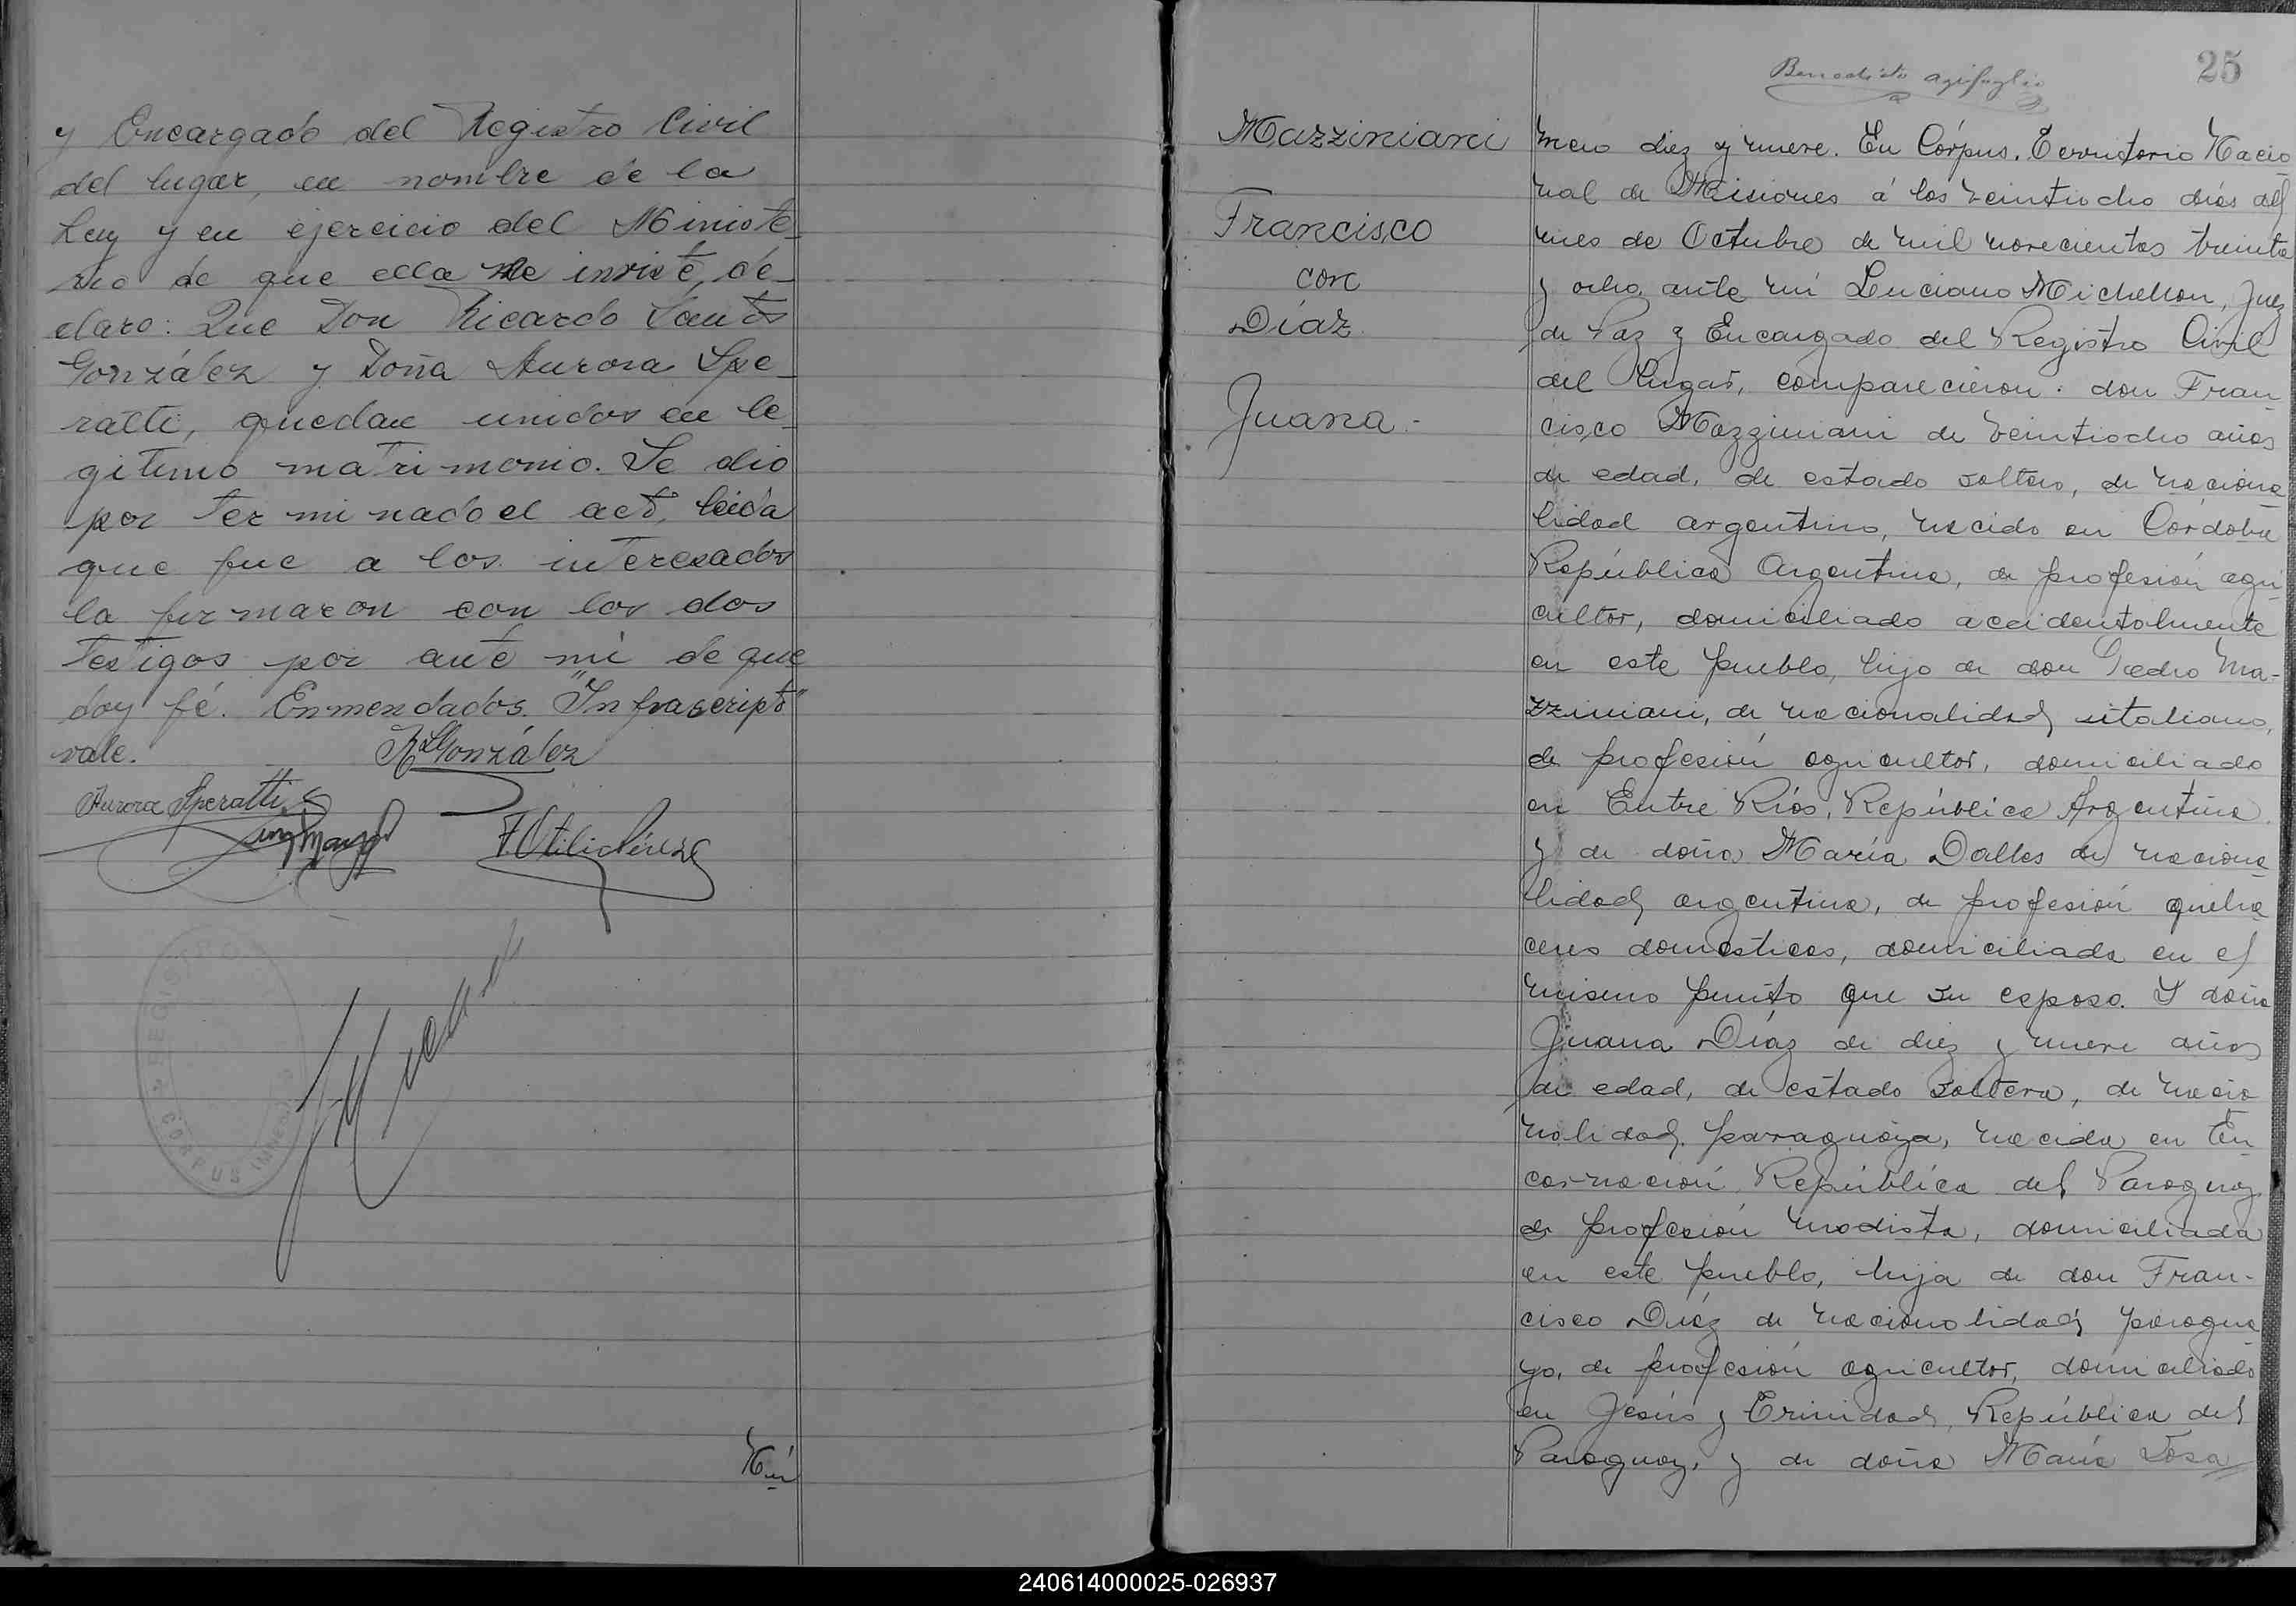 y Encargado del Registro Civil
del lugar, en nombre de la
Ley y en ejercicio del Ministe-
rio de que ella me inviste, de-
claro: Que Don Ricardo Santos
González y Doña Aurora Spe-
ratti, quedan unidos en le-
gitimo matrimonio. Se dio
por terminado el acto, leida
que fue a los interesados
la firmaron con los dos
testigos por ante mi de que
doy fé. Enmendados. "Infrascripto"
vale.
R S González
Aurora Speratti
F. Otilio Pérez
REGISTRO
CORPUS
Nú
25
Benedicto
Mazziniani
Francisco
con
Díaz
Juana.-
mero diez y nueve. En Córpus, Territorio Nacio
nal de Misiones á los veintiocho días del
mes de Octubre de mil novecientos treinta
y ocho, ante mí Luciano Michellon, Juez
de Paz y Encargado del Registro Civil
del lugar, comparecieron: don Fran
cisco Mazziniani de veintiocho años
de edad, de estado soltero, de naciona
lidad argentino, nacido en Córdoba
República Argentina, de profesión agri
cultor, domiciliado accidentalmente
en este pueblo, hijo de don Pedro Ma-
zziniani, de nacionalidad italiano,
de profesión agricultor, domiciliado
en Entre Ríos, República Argentina
y de doña María Dalles de naciona
lidad argentina, de profesión queha
ceres domesticos, domiciliada en el
mismo punto que su esposo. Y doña
Juana Díaz de diez y nueve años
de edad, de estado soltera, de nacio
nalidad paraguaya, nacida en En
carnación República del Paraguay
de profesión modista, domiciliada
en este pueblo, hija de don Fran-
cisco Díaz de nacionalidad paragua
yo, de profesión agricultor, domiciliado
en Jesús y Trinidad, República del
Paraguay, y de doña María Sosa
240614000025-026937